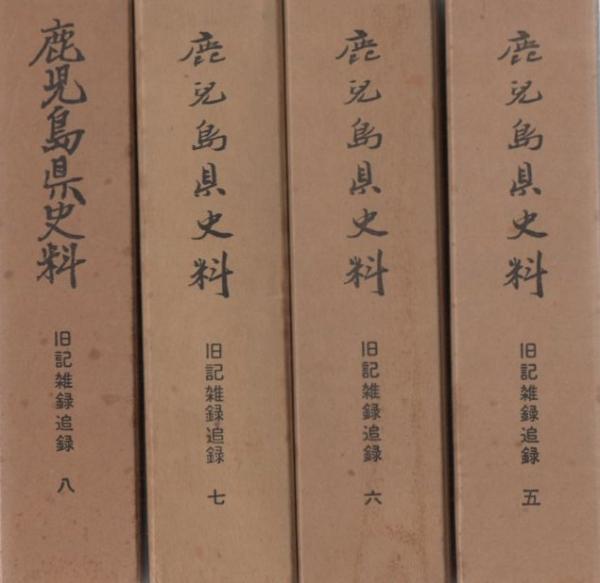 鹿児島県史料
旧記雑録追録 八
鹿児島県史料
旧記雑録追録 七
鹿児島県史料
旧記雑録追録 六
鹿児島県史料
旧記雑録追録 五